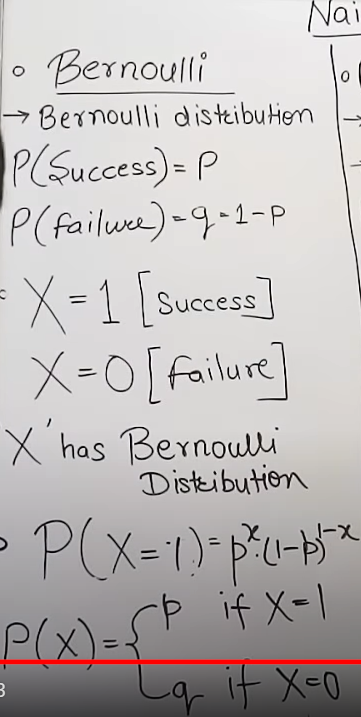 Nai
○ Bernoulli
→ Bernoulli distribution
P(Success) = p
P(failure) = q = 1-p
X = 1 [Success]
X = 0 [failure]
X has Bernoulli
Distribution
P(X=1) = p^x·(1-p)^1-x
P(x) = { p if X=1
q if X=0
3